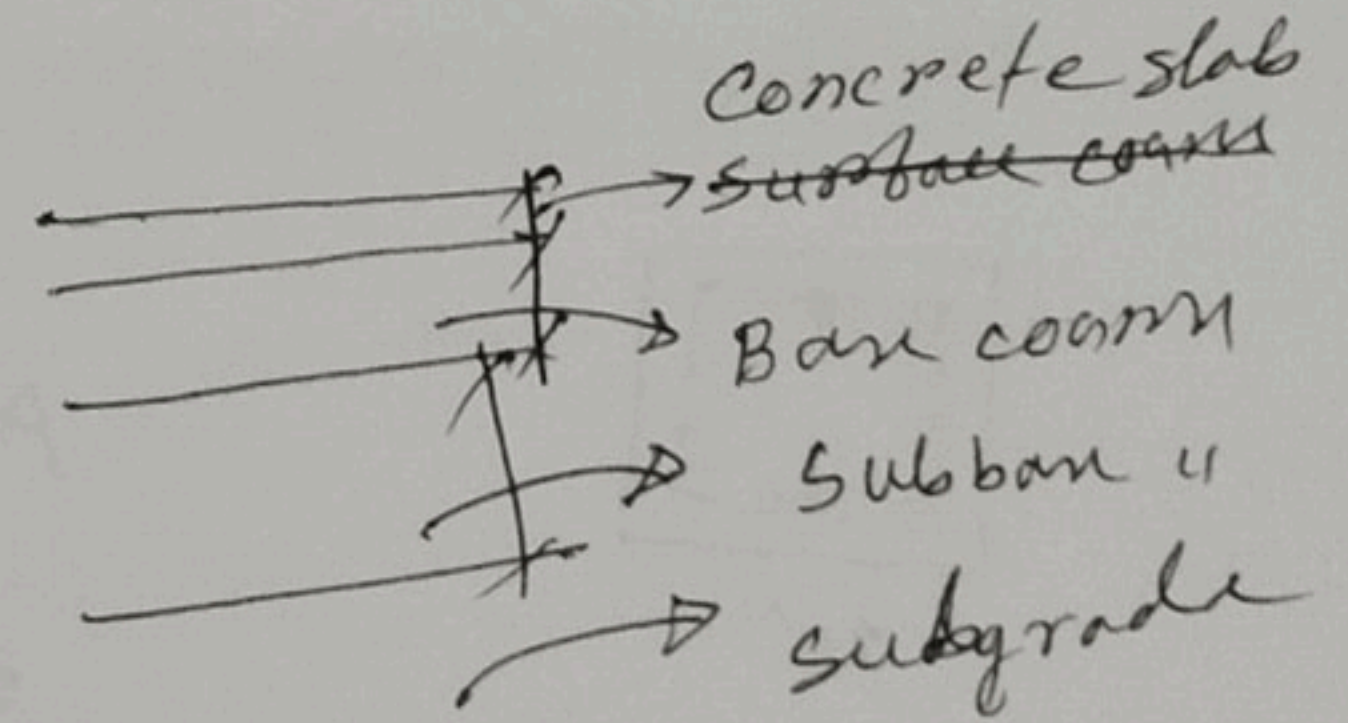 Concrete slab
Surface course
Base course
Subbase "
Subgrade